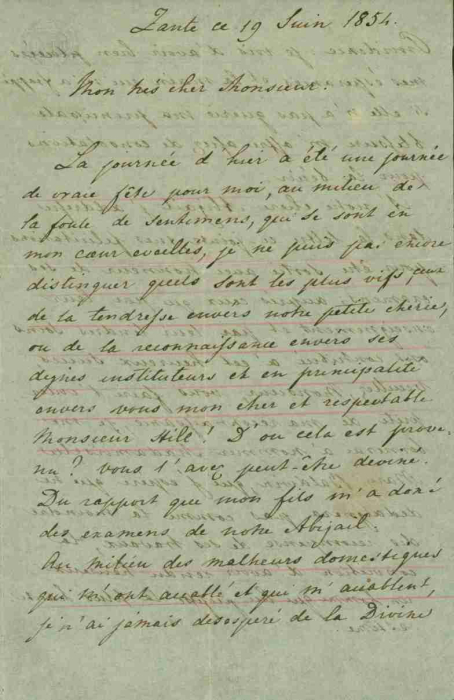 Zante ce 19 Juin 1854.
Mon tres cher Monsieur!
La journée d hier a été une journée
de vraie fête pour moi, au milieu de
la foule de sentimens, qui se sont en
mon cœur eveilles, je ne puis pas encore
distinguer quels sont les plus vifs, ceux
de la tendresse envers notre petite cherie,
ou de la reconnaissance envers ses
dignes instituteurs et en principalité
envers vous mon cher et respectable
Monsieur Hilé! D ou cela est prove-
nu? vous l'avez peut-être deviné.
Du rapport que mon fils m'a doné
des examens de notre Abigail.
Au milieu des malheurs domestiques
qui m'ont accablé et qui m'accablent,
je n'ai jamais desesperé de la Divine